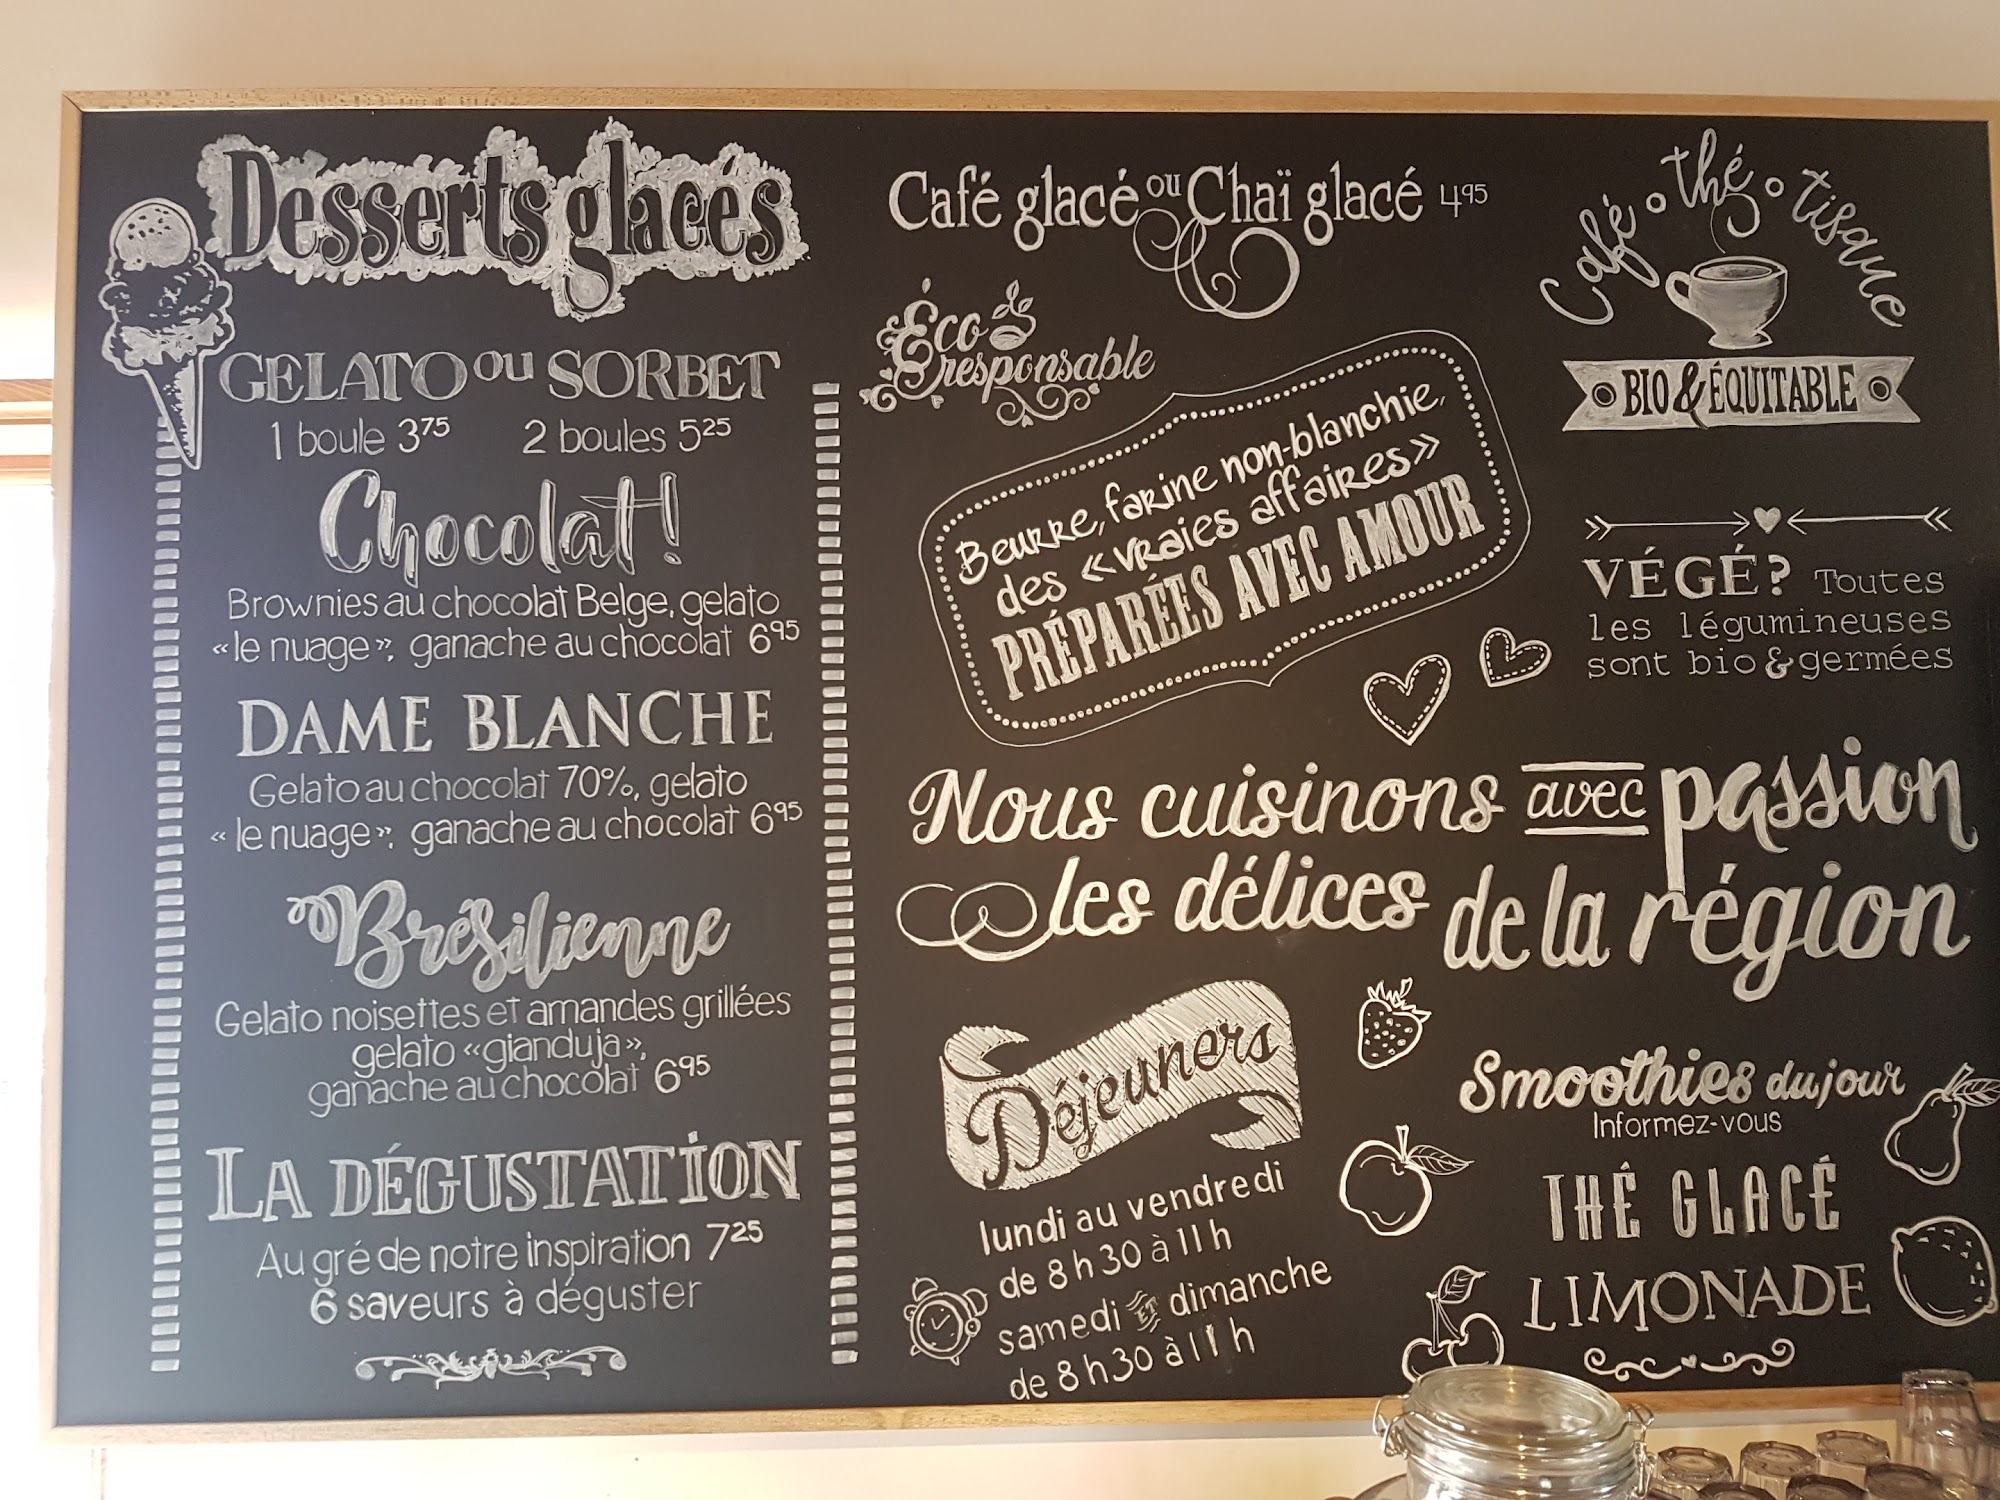 Desserts glacés
GELATO OU SORBET
1 boule 3⁷⁵ 2 boules 5²⁵
Chocolat!
Brownies au chocolat Belge, gelato
« le nuage », ganache au chocolat 6⁹⁵
DAME BLANCHE
Gelato au chocolat 70%, gelato
« le nuage », ganache au chocolat 6⁹⁵
Brésilienne
Gelato noisettes et amandes grillées
gelato «gianduja»,
ganache au chocolat 6⁹⁵
LA DÉGUSTATION
Au gré de notre inspiration 7²⁵
6 saveurs à déguster
Café glacé ou Chaï glacé 4⁹⁵
Éco
responsable
Beurre, farine non-blanchie,
des «vraies affaires»
PRÉPARÉES AVEC AMOUR
Café o thé o tisane
BIO & ÉQUITABLE
VÉGÉ? Toutes
les légumineuses
sont bio & germées
Nous cuisinons avec passion
les délices de la région
Déjeuners
lundi au vendredi
de 8 h 30 à 11 h
samedi ET dimanche
de 8 h 30 à 11 h
Smoothies du jour
Informez-vous
THÉ GLACÉ
LIMONADE